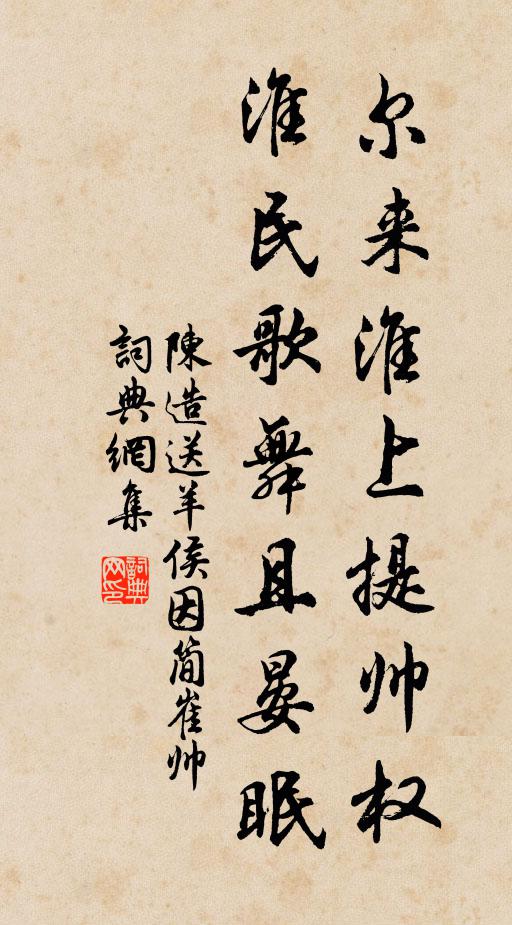 尔来淮上提帅权
淮民歌舞且晏眠
陳造送羊侯因简崔帅
詞典網集
詞典网印